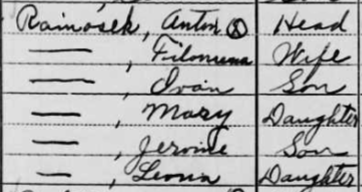 Rainosek, Anton ⓧ Head
—, Filomena Wife
—, Ivan Son
—, Mary Daughter
—, Jerome Son
—, Leona Daughter